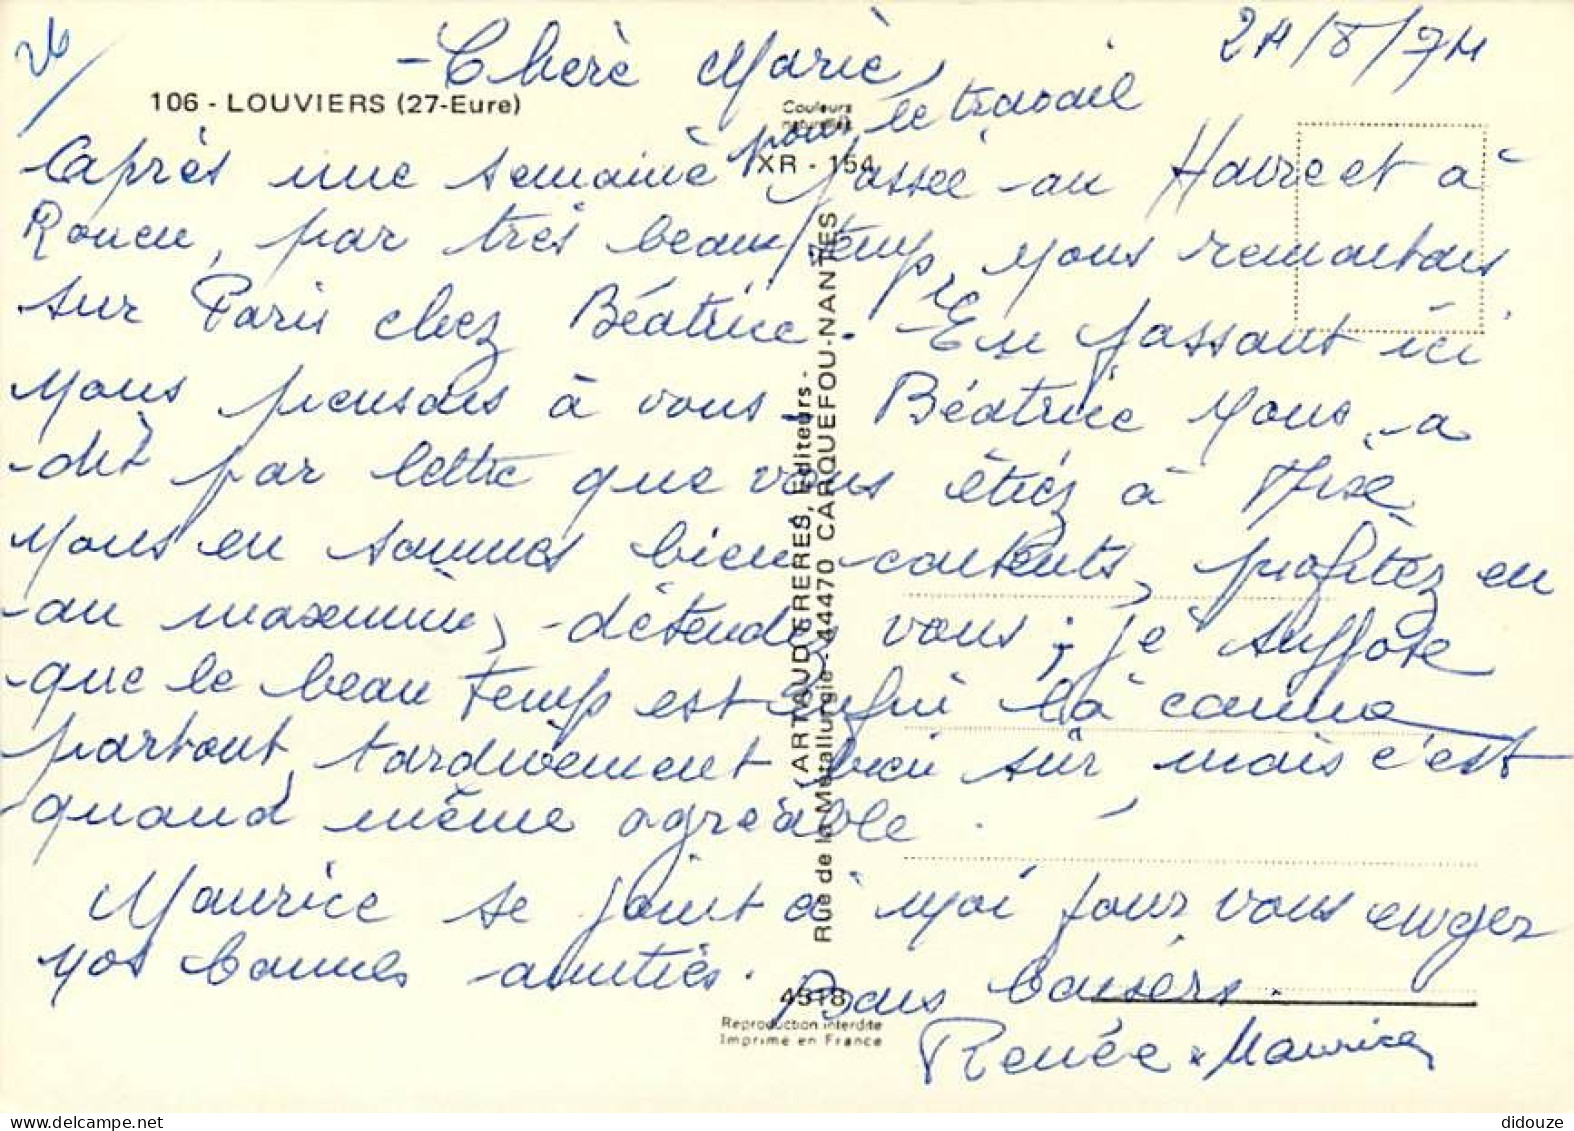 26
- Chère Marie,
24/8/74
106 - LOUVIERS (27-Eure)
Couleurs
naturelles
pour le travail
XR - 154
Après une semaine passée au Havre et à
Rouen, par très beau temps, nous remontons
sur Paris chez Béatrice. En passant ici
nous pensons à vous. Béatrice nous a
dit par lettre que vous étiez à
nous en sommes bien contents, profitez en
au maximum, détendez vous ; je suppose
que le beau temps est enfin là comme
partout, tardivement bien sûr, mais c'est
quand même agréable.
Maurice se joint à moi pour vous envoyer
nos bonnes amitiés.
Bons baisers.
Renée & Maurice
ARTAUD FRERES, Editeurs -
Rue de la Métallurgie - 44470 CARQUEFOU-NANTES
4318
Reproduction interdite
Imprimé en France
didouze